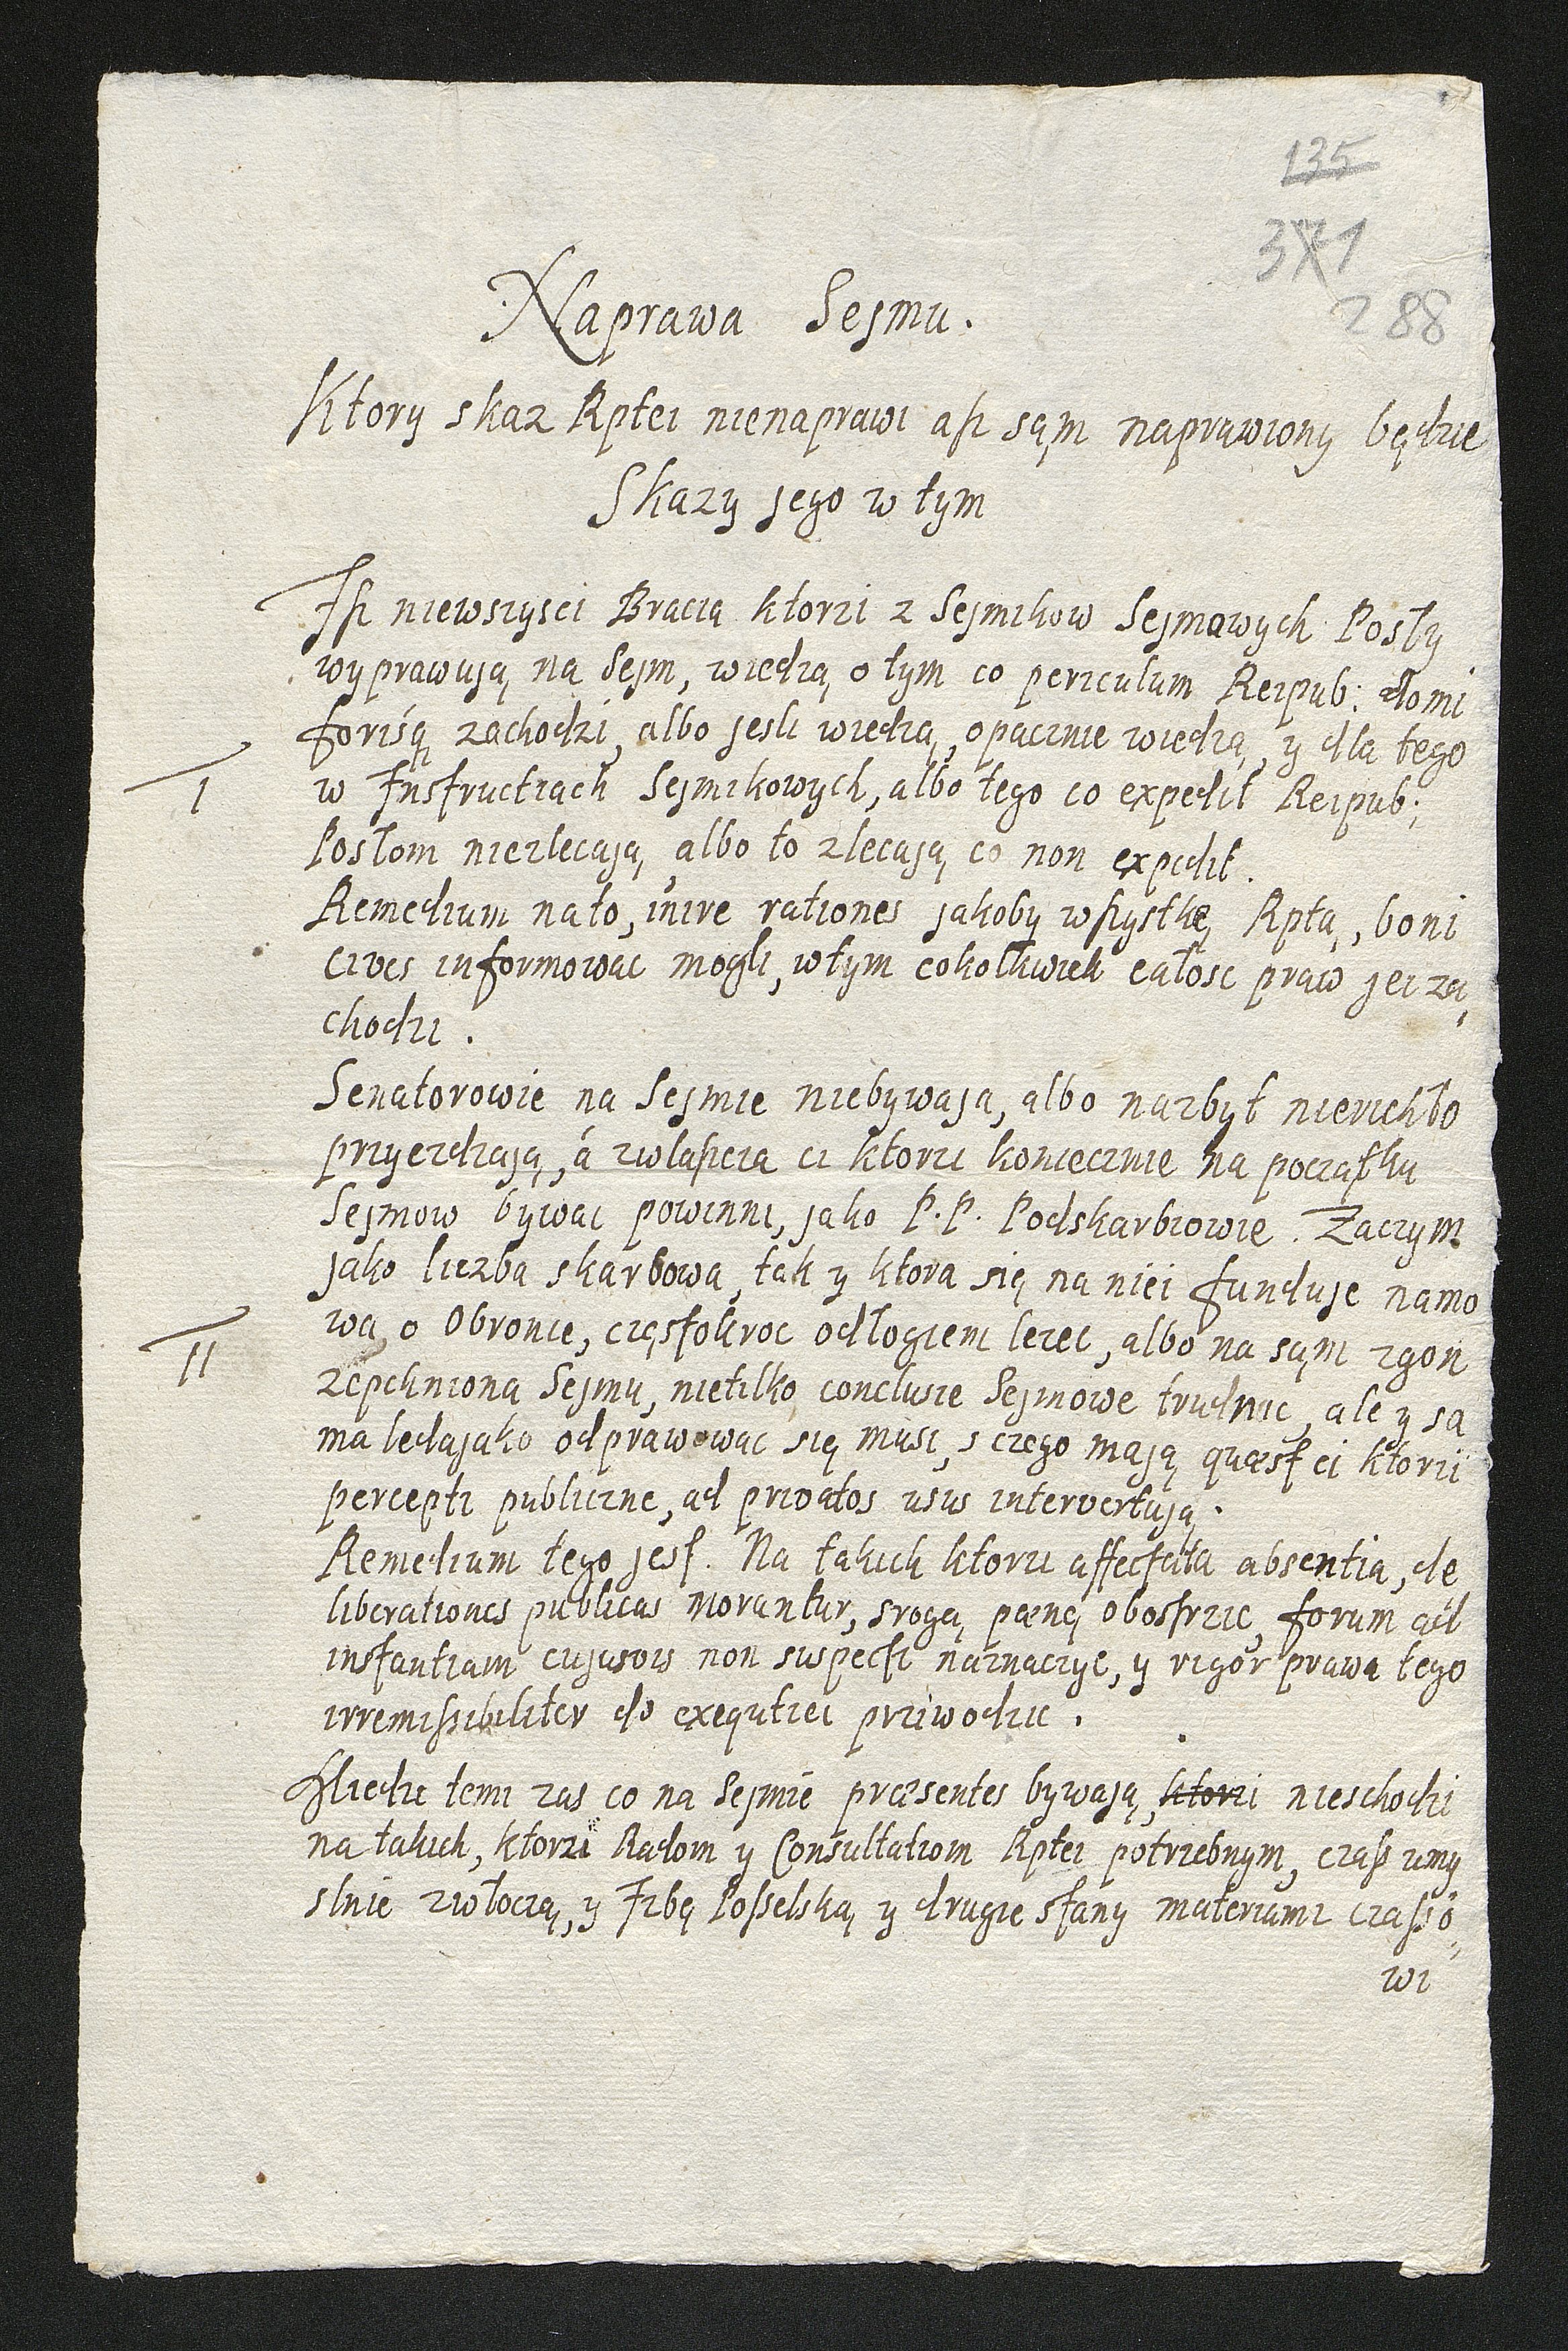 135
371
288
Naprawa Sejmu.
Ktory skaz Rptei nienaprawi aß sąm naprawiony będzie
Skazy jego w tym
Iß niewszysci Bracia ktorzi z Sejmikow Sejmowych Posły
wyprawują na Sejm, wiedzą o tym co periculum Reipub: domi
forisq zachodzi, albo jesli wiedzą, opacznie wiedzą, y dla tego
I
w Instructiach Sejmikowych, albo tego co expedit Reipub:
Posłom niezlecają, albo to zlecają co non expedit.
Remedium nato, inire rationes jakoby wßystkę Rptą, boni
cives informowac mogli, wtym cokolkwiek całosc praw jei za,
chodzi.
Senatorowie na Sejmie niebywaja, albo nazbyt nierichło
przyezdzają, á zwlaßcza ci ktorzi koniecznie na początku
Sejmow bywac powinni, jako P.P. Podskarbiowie. Zaczym
jako liczba skarbowa, tak y ktora się na niei funduje namo
II
wa o Obronie, częstokroc odłogiem lezec, albo na sąm zgon
zepchniona Sejmu, nietilko conclusie Sejmowe trudnic, ale y sa
ma ledajako odprawowac się musi, s czego mają quæst ci ktorzi
percepti publiczne, ad privatos usus intervertują.
Remedium tego jest. Na takich ktorzi affectata absentia, de
liberationes publicas morantur, srogą pænę obostrzic, forum ad
instantiam cujusvis non suspecti naznaczyc, y rigor prawa tego
irremißibiliter do exequtiei prziwodzic.
Miedzi temi zas co na Sejmie præsentes bywają, ktorzi nieschodzi
na takich, ktorzi Radom y Consultatiom Rptei potrzebnym, czaß umy
slnie zwłoczą, y Izbę Poßelską y drugie stany materiami czaßo,
wi